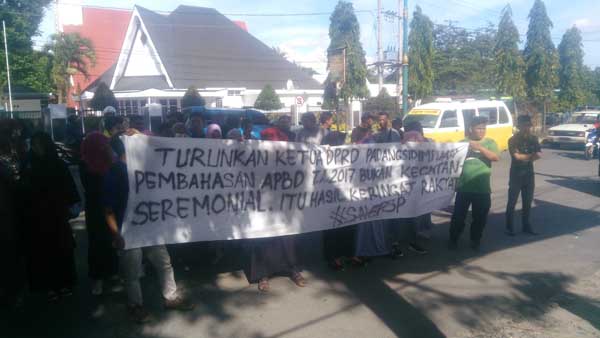 TURUNKAN KETUA DPRD PADANGSIDIMPUAN
PEMBAHASAN APBD T.A 2017 BUKAN KEGIATAN
SEREMONIAL. ITU HASIL KERINGAT RAKYAT